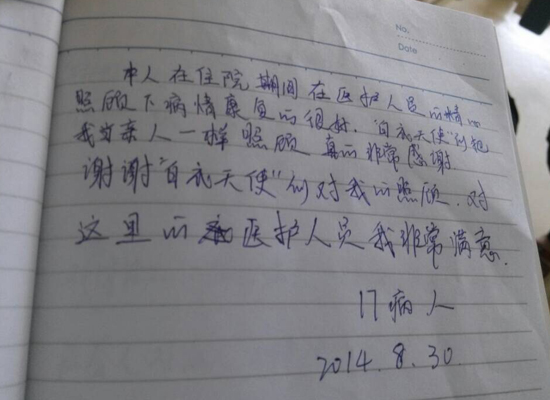 No.
Date
本人在住院期间在医护人员的精心
照顾下病情康复的很好."白衣天使"们把
我当亲人一样照顾真的非常感谢
谢谢"白衣天使"们对我的照顾.对
这里的医护人员我非常满意.
17病人
2014.8.30.